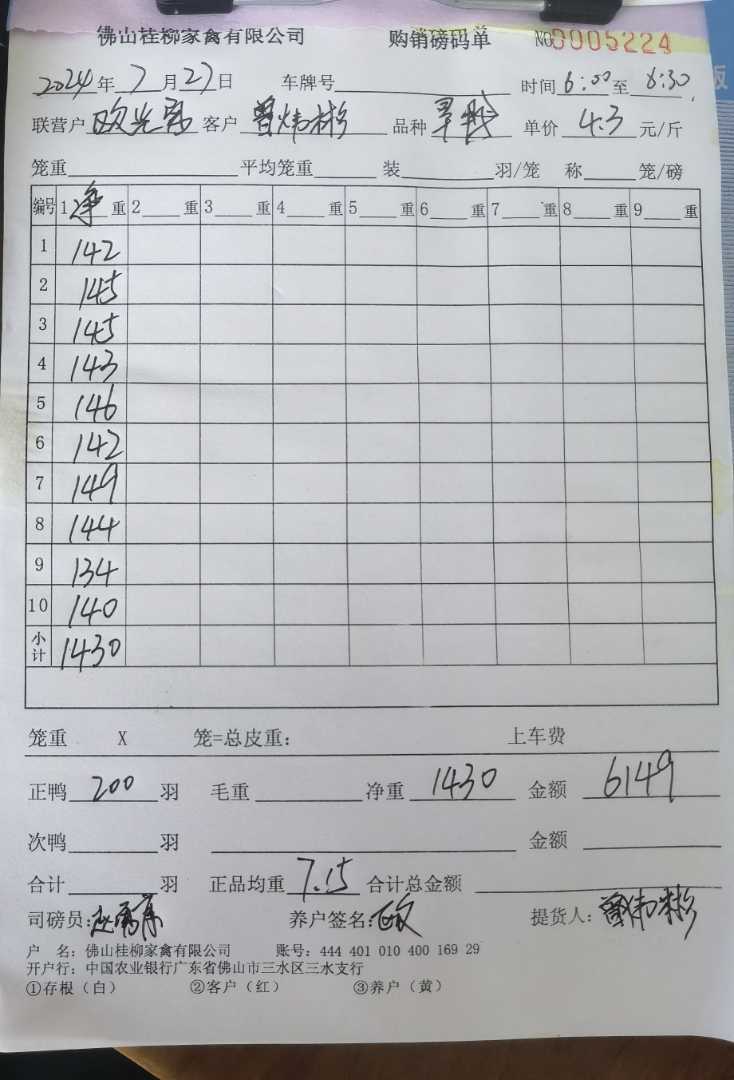 佛山桂柳家禽有限公司 购销磅码单 NO 0005224
2024年7月27日 车牌号 时间6:00至6:30
联营户 欧光 客户 曾炜彬 品种 单价 4.3 元/斤
笼重 平均笼重 装 羽/笼 称 笼/磅
编号 1 净 重 2 重 3 重 4 重 5 重 6 重 7 重 8 重 9 重
1 142
2 145
3 145
4 143
5 146
6 142
7 149
8 144
9 134
10 140
小计 1430
笼重 X 笼=总皮重: 上车费
正鸭 200 羽 毛重 净重 1430 金额 6149
次鸭 羽 金额
合计 羽 正品均重 7.15 合计总金额
司磅员: 养户签名: 欧 提货人: 曾炜彬
户 名: 佛山桂柳家禽有限公司 账号: 444 401 010 400 169 29
开户行: 中国农业银行广东省佛山市三水区三水支行
①存根(白) ②客户(红) ③养户(黄)